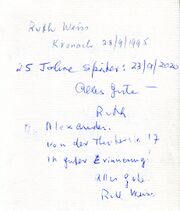 Ruth Weiss
Kronach 23/9/1995
25 Jahre später: 23/9/2020
Alles Gute —
Ruth
Alexander.
von der 17
in guter Erinnerung!
Alles Gute.
Ruth Weiss